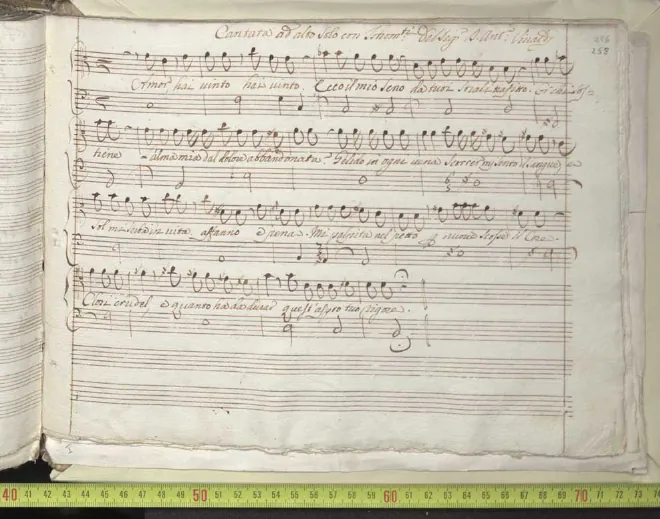 Cantata ad alto solo con Istrom.ti Del Sig.r D. Ant.o Vivaldi
258
Amor hai vinto hai vinto. Ecco il mio seno da tuoi strali trafitto. Or chi sos=
tiene l'alma mia dal dolore abbandonata? Gelido in ogni vena scorrer mi sento il sangue, e
sol mi serba in vita affanno e pena. Mi palpita nel petto nuove scosse il Core.
Clori crudel, e quanto ha da durar quest'aspro tuo rigore.
40 41 42 43 44 45 46 47 48 49 50 51 52 53 54 55 56 57 58 59 60 61 62 63 64 65 66 67 68 69 70 71 72 73 74